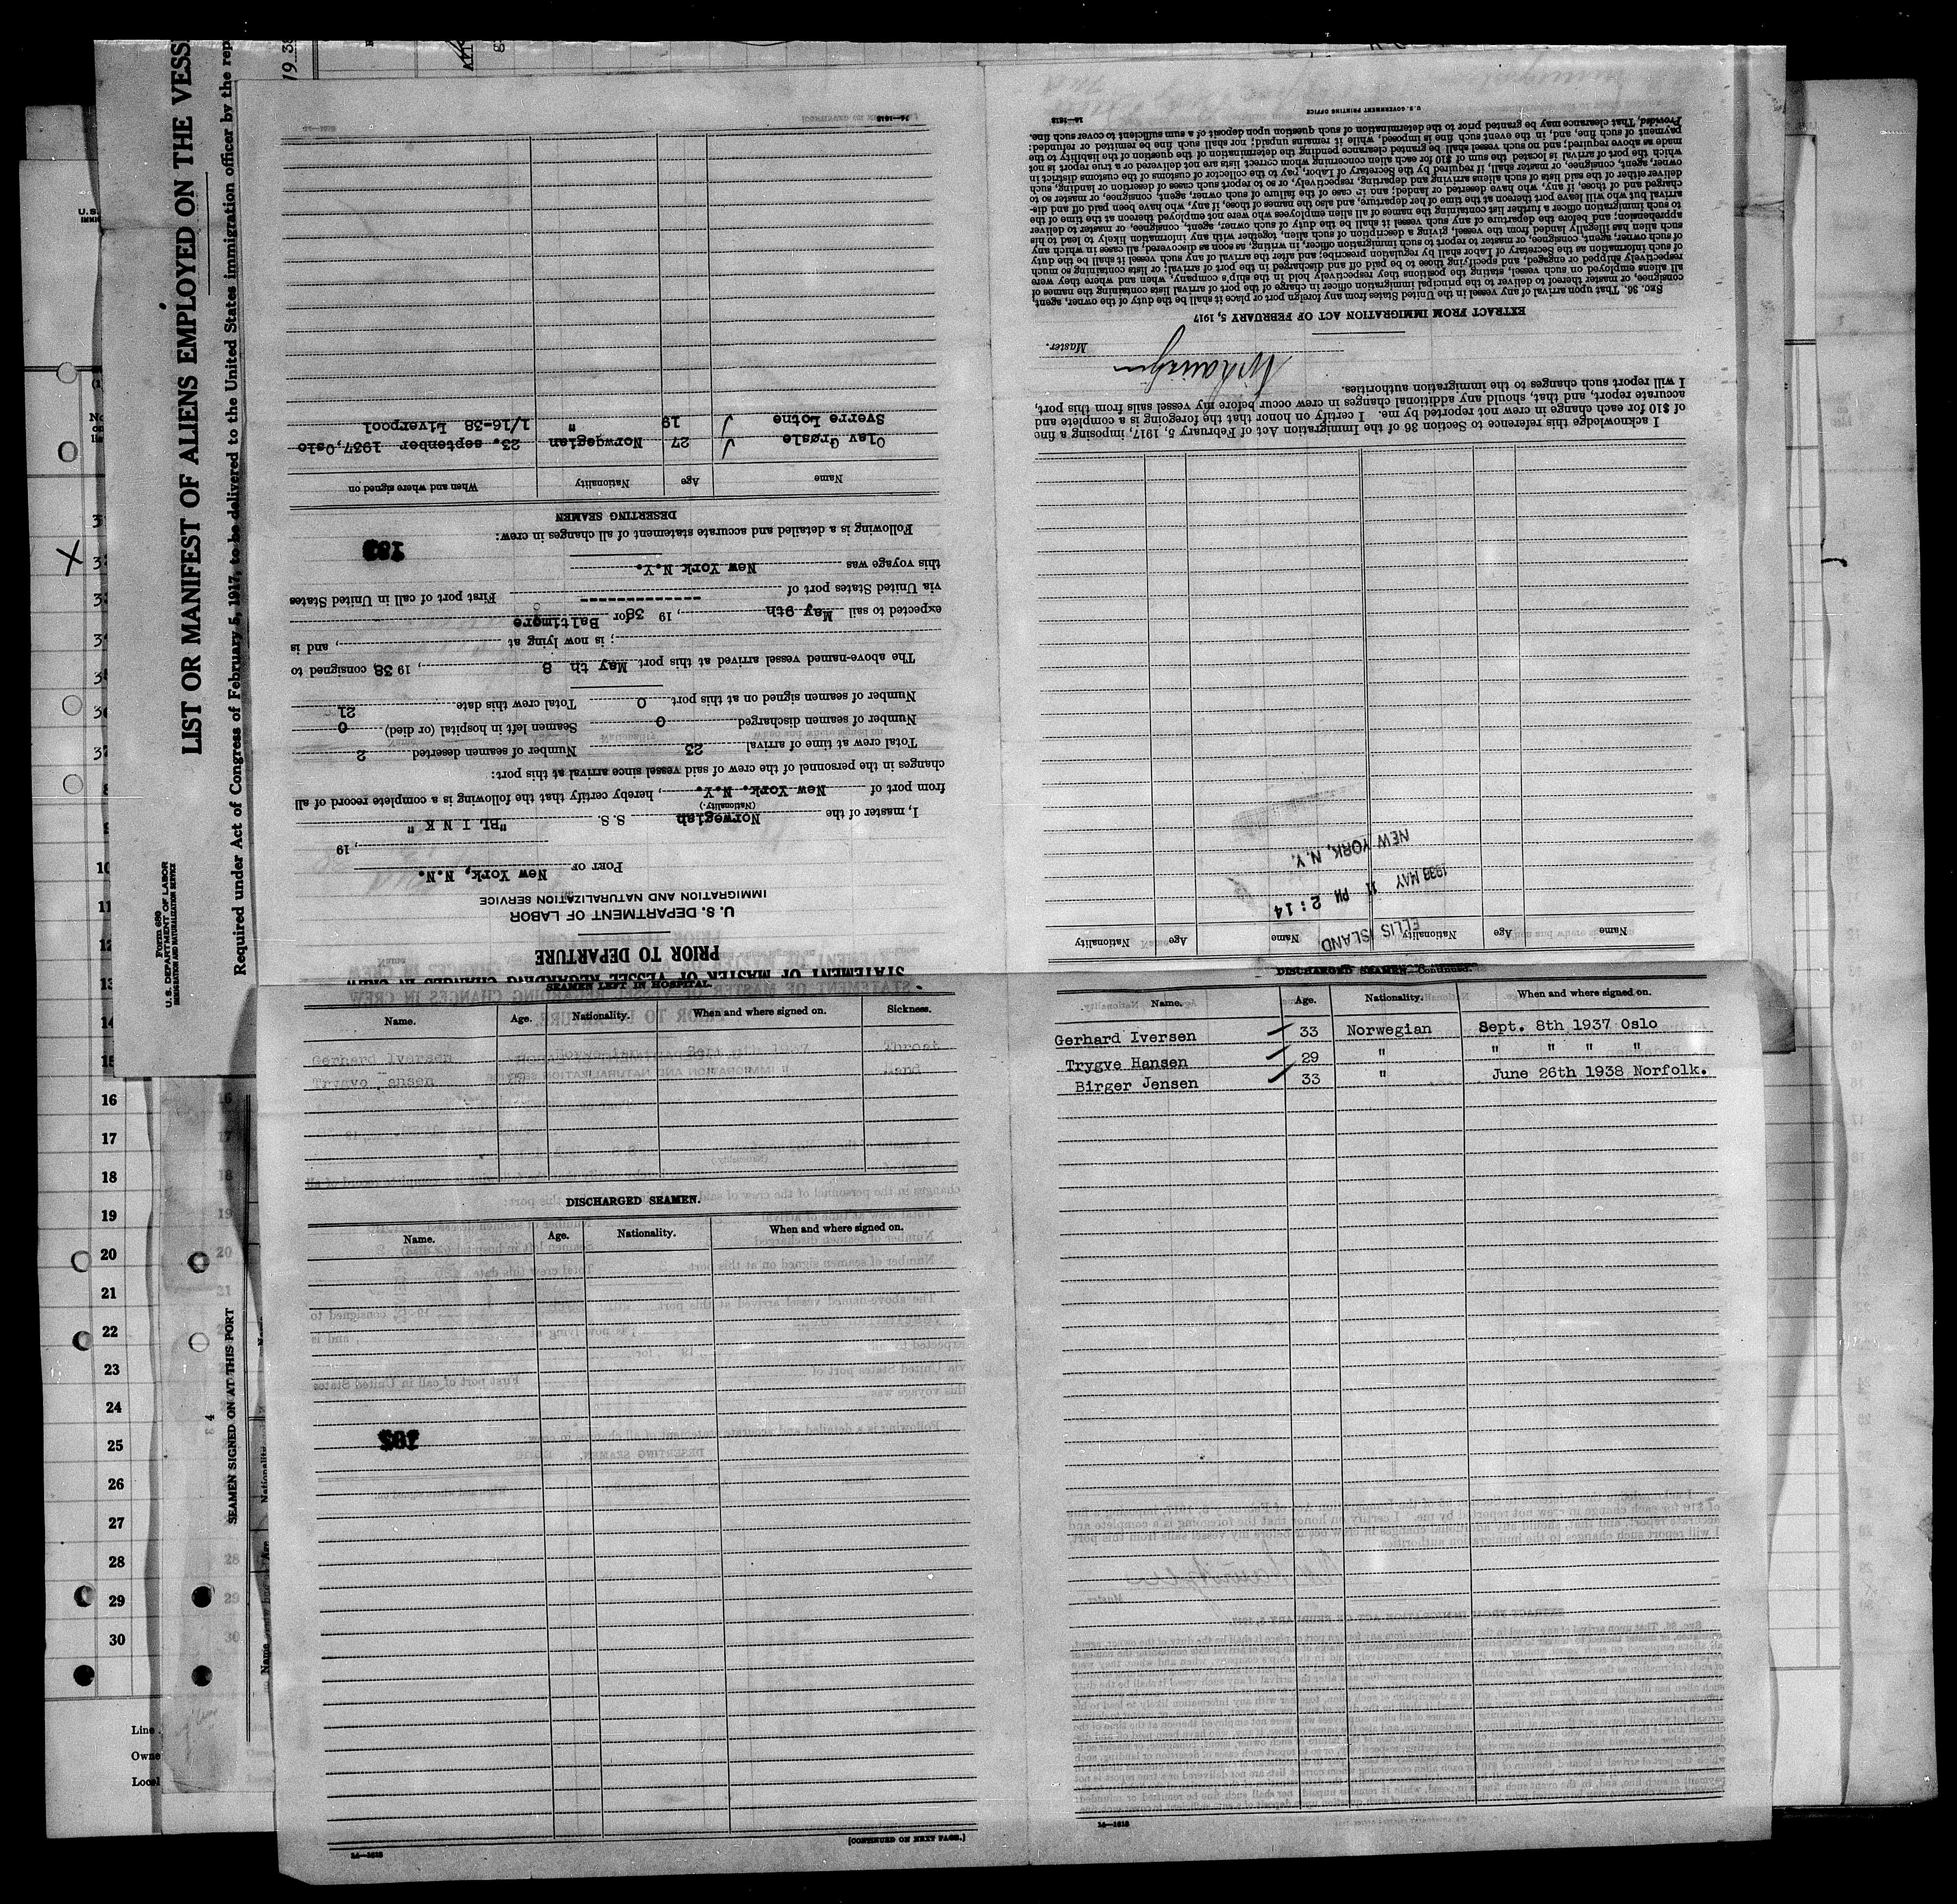 LIST OR MANIFEST OF ALIENS EMPLOYED ON THE VESS
Required under Act of Congress of February 5, 1917, to be delivered to the United States immigration officer by the rep
Form 689
U. S. DEPARTMENT OF LABOR
IMMIGRATION AND NATURALIZATION SERVICE
STATEMENT OF MASTER OF VESSEL REGARDING CHANGES IN CREW
PRIOR TO DEPARTURE
U. S. DEPARTMENT OF LABOR
IMMIGRATION AND NATURALIZATION SERVICE
PORT OF New York, N.N.
, 19
I, master of the Norwegian S.S. "BL I N K "
(Nationality.)
from port of New York. N.Y. , hereby certify that the following is a complete record of all
changes in the personnel of the crew of said vessel since arrival at this port:
Total crew at time of arrival 23 Number of seamen deserted 2
Number of seamen discharged 0 Seamen left in hospital (or died) 0
Number of seamen signed on at this port 0 Total crew this date 21
The above-named vessel arrived at this port May th 8 , 19 38 consigned to
; is now lying at , and is
expected to sail May 9th , 19 38 for Baltimore
via United States port of ------------- First port of call in United States
this voyage was New York N.Y.
Following is a detailed and accurate statement of all changes in crew:
DESERTING SEAMEN
Name Age Nationality When and where signed on
Olav Grøsle 27 Norwegian 23. september 1937, Oslo
Sverre Lotne 19 " 1/16-38 Liverpool
14—1618
DISCHARGED SEAMEN—Continued.
Name Age Nationality Name Age Nationality
ELLIS ISLAND
1938 MAY 11 PM 2:14
NEW YORK, N.Y.
I acknowledge this reference to Section 36 of the Immigration Act of February 5, 1917, imposing a fine
of $10 for each change in crew not reported by me. I certify on honor that the foregoing is a complete and
accurate report, and that, should any additional changes in crew occur before my vessel sails from this port,
I will report such changes to the immigration authorities.
Master.
EXTRACT FROM IMMIGRATION ACT OF FEBRUARY 5, 1917
SEC. 36. That upon arrival of any vessel in the United States from any foreign port or place it shall be the duty of the owner, agent,
consignee, or master thereof to deliver to the principal immigration officer in charge of the port of arrival lists containing the names of
all aliens employed on such vessel, stating the positions they respectively hold in the ship's company, when and where they were
respectively shipped or engaged, and specifying those to be paid off and discharged in the port of arrival; or lists containing so much
of such information as the Secretary of Labor shall by regulation prescribe; and after the arrival of any such vessel it shall be the duty
of such owner, agent, consignee, or master to report to such immigration officer, in writing, as soon as discovered, all cases in which any
such alien has illegally landed from the vessel, giving a description of such alien, together with any information likely to lead to his
apprehension; and before the departure of any such vessel it shall be the duty of such owner, agent, consignee, or master to deliver
to such immigration officer a further list containing the names of all alien employees who were not employed thereon at the time of the
arrival but who will leave port thereon at the time of her departure, and also the names of those, if any, who have been paid off and dis-
charged and of those, if any, who have deserted or landed; and in case of the failure of such owner, agent, consignee, or master so to
deliver either of the said lists of such aliens arriving and departing, respectively, or so to report such cases of desertion or landing, such
owner, agent, consignee, or master shall, if required by the Secretary of Labor, pay to the collector of customs of the customs district in
which the port of arrival is located the sum of $10 for each alien concerning whom correct lists are not delivered or a true report is not
made as above required; and no such vessel shall be granted clearance pending the determination of the question of the liability to the
payment of such fine, and, in the event such fine is imposed, while it remains unpaid; nor shall such fine be remitted or refunded:
Provided, That clearance may be granted prior to the determination of such question upon deposit of a sum sufficient to cover such fine.
14—1618 U. S. GOVERNMENT PRINTING OFFICE
SEAMEN LEFT IN HOSPITAL.
Name. Age. Nationality. When and where signed on. Sickness.
Gerhard Iversen Throat
Trygve Hansen 29 " Hand
DISCHARGED SEAMEN.
Name. Age. Nationality. When and where signed on.
[CONTINUED ON NEXT PAGE.]
14—1618
Name. Age. Nationality. When and where signed on.
Gerhard Iversen 33 Norwegian Sept. 8th 1937 Oslo
Trygve Hansen 29 " " " " "
Birger Jensen 33 " June 26th 1938 Norfolk.
14—1618
SEAMEN SIGNED ON AT THIS PORT
Name
Age
Nationality
10
11
12
13
14
15
16
17
18
19
20
21
22
23
24
25
26
27
28
29
30
Line
Owne
Local